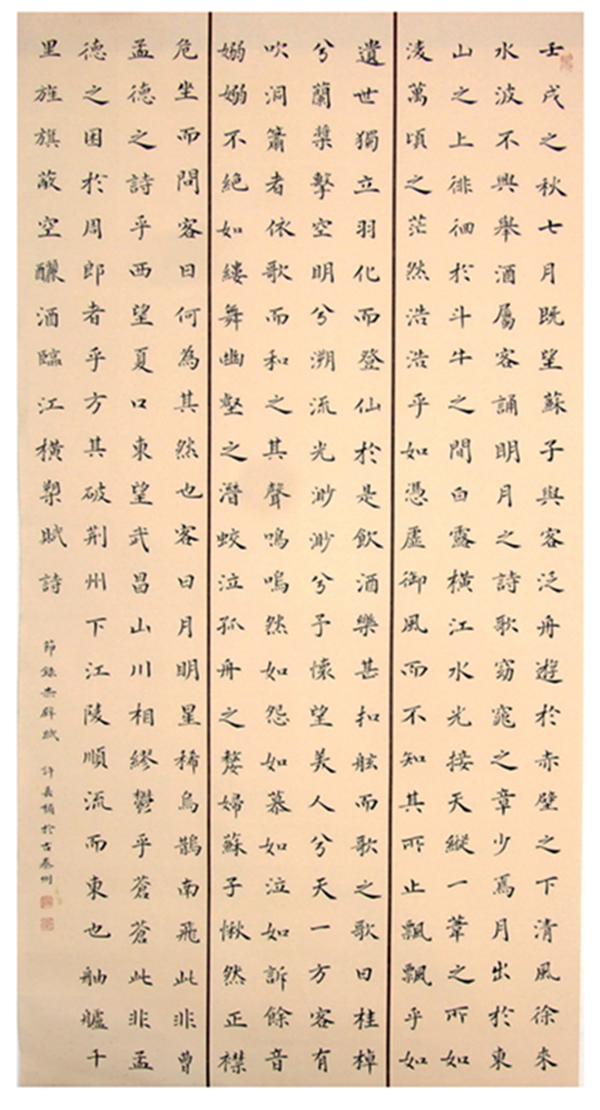 壬戌之秋七月既望蘇子與客泛舟遊於赤壁之下清風徐來
水波不興舉酒屬客誦明月之詩歌窈窕之章少焉月出於東
山之上徘徊於斗牛之間白露橫江水光接天縱一葦之所如
淩萬頃之茫然浩浩乎如憑虛御風而不知其所止飄飄乎如
遺世獨立羽化而登仙於是飲酒樂甚扣舷而歌之歌曰桂棹
兮蘭槳擊空明兮溯流光渺渺兮予懷望美人兮天一方客有
吹洞簫者依歌而和之其聲嗚嗚然如怨如慕如泣如訴餘音
嫋嫋不絕如縷舞幽壑之潛蛟泣孤舟之嫠婦蘇子愀然正襟
危坐而問客曰何為其然也客曰月明星稀烏鵲南飛此非曹
孟德之詩乎西望夏口東望武昌山川相繆鬱乎蒼蒼此非孟
德之困於周郎者乎方其破荊州下江陵順流而東也舳艫千
里旌旗蔽空釃酒臨江橫槊賦詩
節錄赤壁賦 許於古泰州